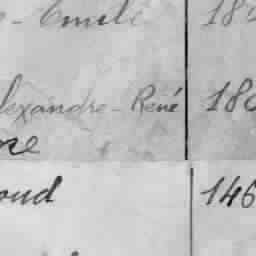 -Emile 18
lexandre-René 180
re
oud 146